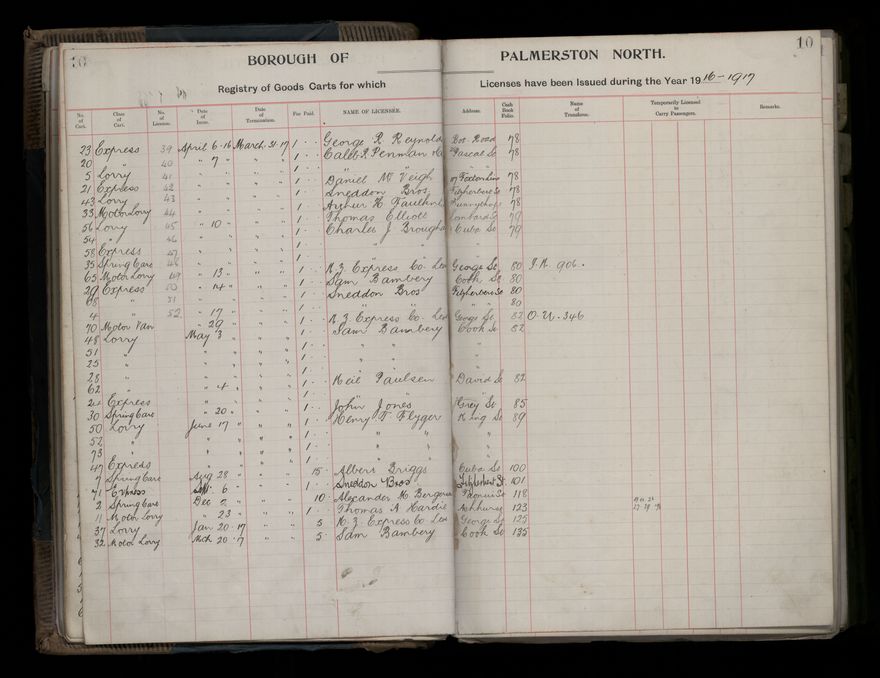 10
BOROUGH OF PALMERSTON NORTH. 10
Registry of Goods Carts for which Licenses have been Issued during the Year 1916-1917
No. of Cart. Class of Cart. No. of License. Date of Issue. Date of Termination. Fee Paid. NAME OF LICENSEE. Address. Cash Book Folio. Name of Transferee. Temporarily Licensed to Carry Passengers. Remarks.
23 Express 39 April 6-16 March 31-17 1 - - George R Reynolds Bot Road 78
20 " 40 " 7 " " " 1 - - Caleb Penman Pascal St 78
5 Lorry 41 " " " " 1 - - " "
21 Express 42 " " " " 1 - - Daniel McVeigh 78
43 Lorry 43 " " " " 1 - - Sneddon Bros Fitzherbert St 78
33 Motor Lorry 44 " " " " 1 - - Arthur H 78
56 Lorry 45 " 10 " " " 1 - - Thomas Elliott Lombard St 79
54 " 46 " " " " 1 - - Charles J Cuba St 79
58 Express 47 " " " " 1 - - " " "
35 Spring Cart 48 " " " " 1 - - " " "
65 Motor Lorry 49 " 13 " " " 1 - - N.Z. Express Co. George St 80 906.
29 Express 50 " 14 " " " 1 - - Sam Bambery Cook St 80
68 " 51 " " " " 1 - - Sneddon Bros Fitzherbert St 80
4 " 52 " 17 " " " 1 - - " " " 80
70 Motor Van " 29 " " " 1 - - N.Z. Express Co. George St 82 O.U. 346
48 Lorry May 3 " " 1 - - Sam Bambery Cook St 82
51 " " " " 1 - - " " "
25 " " " " 1 - - " " "
28 " " " " 1 - - " " "
62 " " 4 " " " 1 - - Neil Paulsen David St 82
24 Express " " " " 1 - - " "
30 Spring Cart " 20 " " " 1 - - John Jones Grey St 85
50 Lorry June 17 " " " 1 - - Henry T Flyger King St 89
52 " " " " 1 - - " " "
73 " " " " 1 - - " " "
47 Express " " " " 1 - - " " "
7 Spring Cart Aug 28 " " " 15 - Albert Briggs Cuba St 100
71 Express Sept 6 " " 1 - - Sneddon Bros Fitzherbert St 101
2 Spring Cart Dec " " 10 - Alexander M 118
11 Motor Lorry " 23 " " 1 - - Thomas A Hardie Ashhurst 123
37 Lorry Jan 20-17 " " 5 - N.Z. Express Co George St 125
32 Motor Lorry Mch 20-17 " " 5 - Sam Bambery Cook St 135